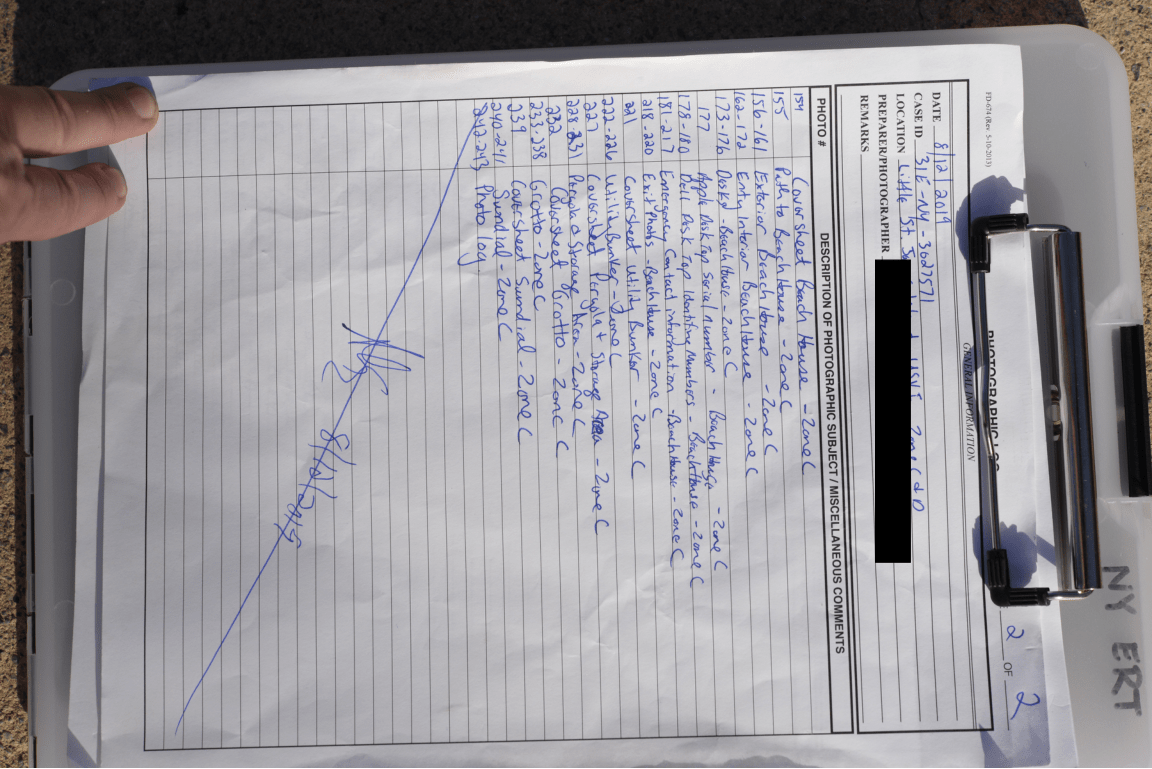 FD-674 (Rev. 5-10-2013)
PHOTOGRAPHIC LOG
2 OF 2
GENERAL INFORMATION
DATE 8/12/2019
CASE ID 31E-NY-3027571
LOCATION Little St. USVI Zone C & D
PREPARER/PHOTOGRAPHER
REMARKS
PHOTO # DESCRIPTION OF PHOTOGRAPHIC SUBJECT / MISCELLANEOUS COMMENTS
154 Coversheet Beach House - Zone C
155 Path to Beach House - Zone C
156-161 Exterior Beach House - Zone C
162-172 Entry Interior Beach House - Zone C
173-176 Desk - Beach House - Zone C
177 Apple Desk Top Serial number - Beach House - Zone C
178-180 Dell Desk Top Identifying Numbers - Beach House - Zone C
181-217 Emergency Contact information - Beach House - Zone C
218-220 Exit Photos - Beach House - Zone C
221 Coversheet Utility Bunker - Zone C
222-226 Utility Bunker - Zone C
227 Coversheet Pergola + Storage Area - Zone C
228-231 Pergola & Storage Area - Zone C
232 Coversheet Grotto - Zone C
233-238 Grotto - Zone C
239 Coversheet Sundial - Zone C
240-241 Sundial - Zone C
242-243 Photo log
NY ERT